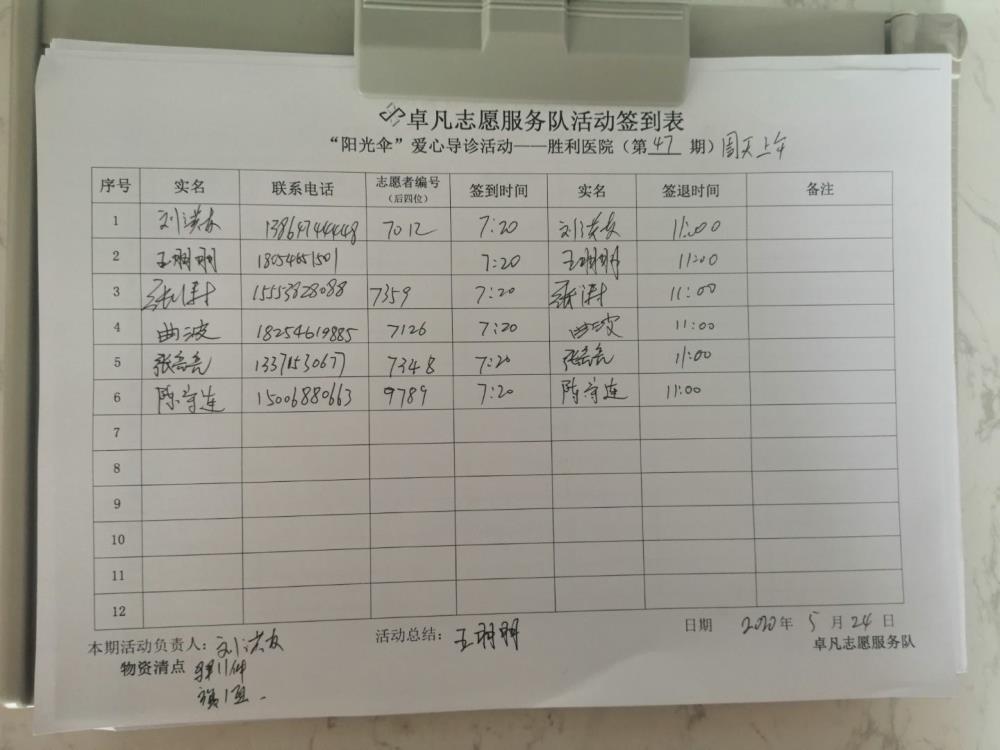 卓凡志愿服务队活动签到表
“阳光伞”爱心导诊活动——胜利医院（第47期）周天上午
序号 实名 联系电话 志愿者编号（后四位） 签到时间 实名 签退时间 备注
1 刘洪友 13864744448 7012 7:20 刘洪友 11:00
2 王明明 18054651501 7:20 王明明 11:00
3 张涛 15553828088 7359 7:20 张涛 11:00
4 曲波 18254619885 7126 7:20 曲波 11:00
5 张岳岳 13371530677 7348 7:20 张岳岳 11:00
6 陈学连 15006880663 9789 7:20 陈学连 11:00
7
8
9
10
11
12
本期活动负责人：刘洪友 活动总结：王明明 日期 2020年5月24日
物资清点 11件 卓凡志愿服务队
旗1面.